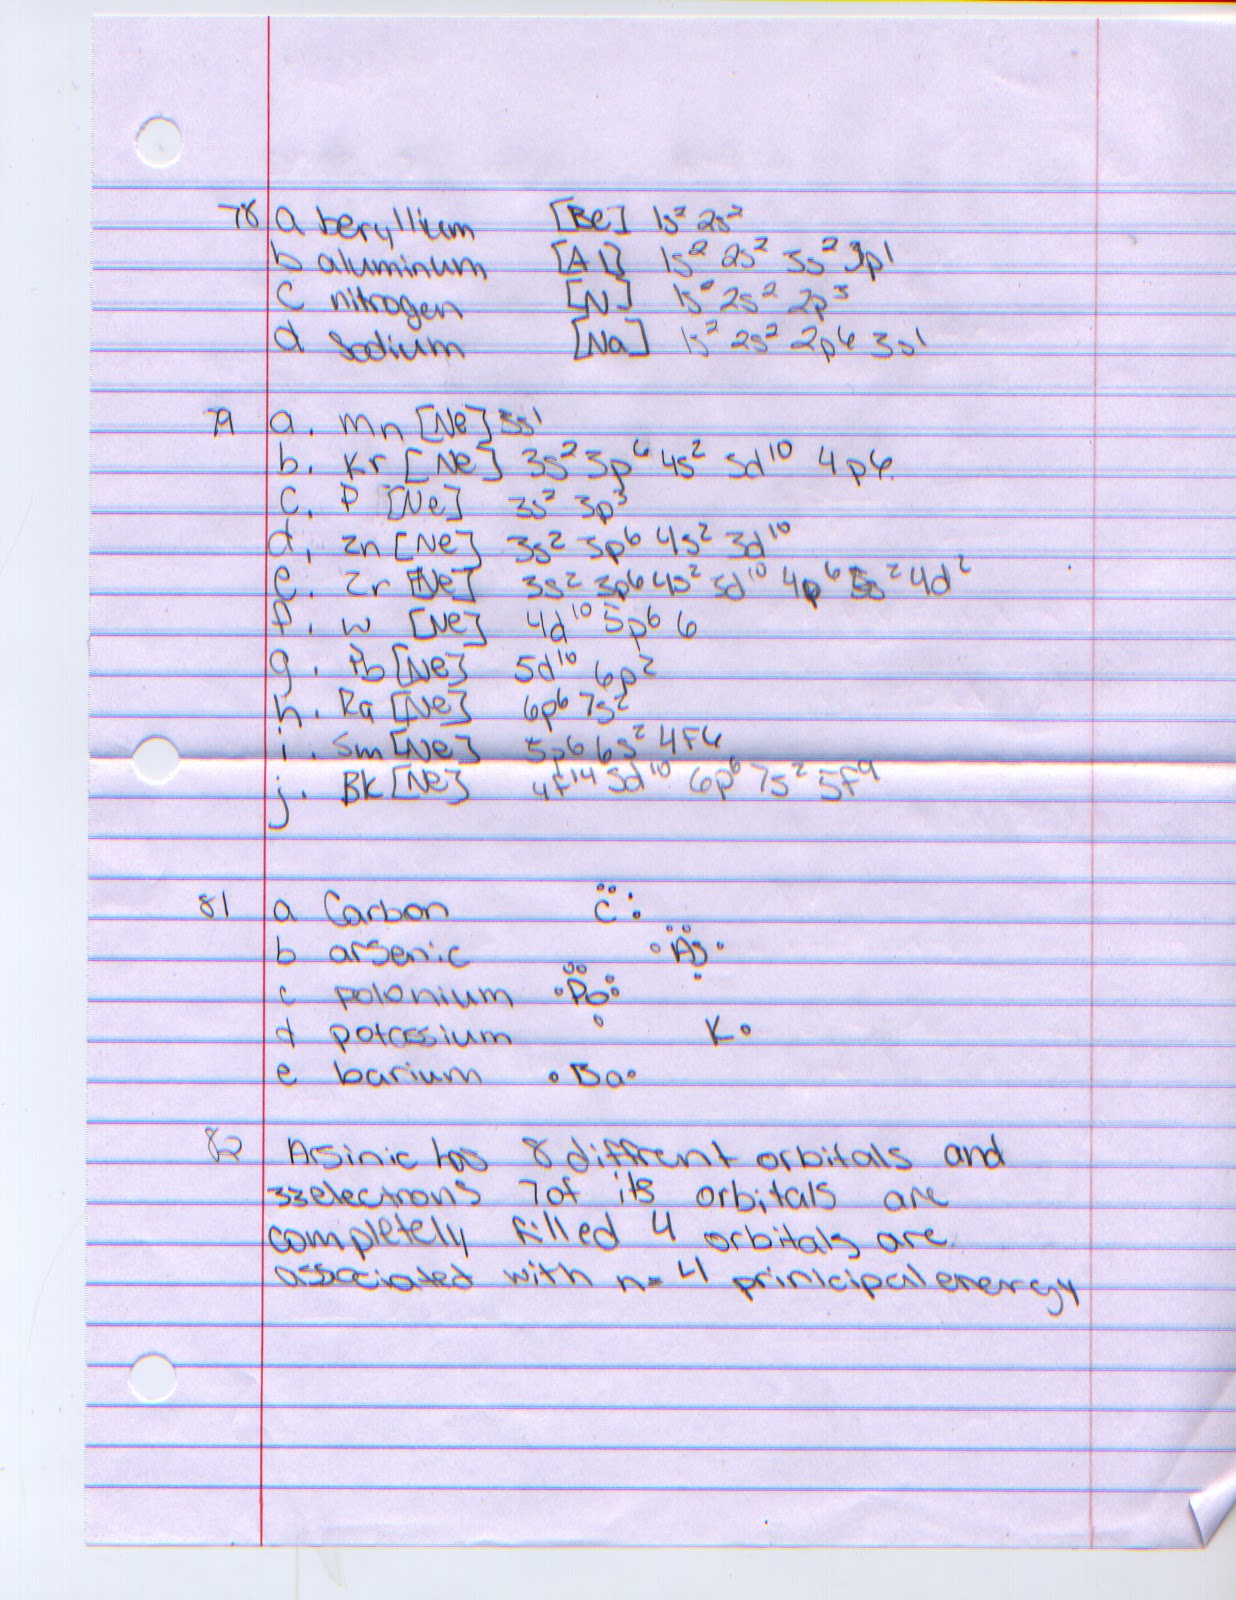 78 a beryllium [Be] 1s² 2s²
b aluminum [Al] 1s² 2s² 3s² 3p¹
c nitrogen [N] 1s² 2s² 2p³
d sodium [Na] 1s² 2s² 2p6 3s¹
79 a. Mn [Ne] 3s¹
b. Kr [Ne] 3s² 3p⁶ 4s² 3d¹⁰ 4p6
c. P [Ne] 3s² 3p³
d. Zn [Ne] 3s² 3p⁶ 4s² 3d¹⁰
e. Zr [Ne] 3s² 3p⁶ 4s² 3d¹⁰ 4p⁶ 5s² 4d²
f. W [Ne] 4d¹⁰ 5p⁶ 6
g. Pb [Ne] 5d¹⁰ 6p²
h. Ra [Ne] 6p⁶ 7s²
i. Sm [Ne] 5p⁶ 6s² 4f6
j. BK [Ne] 4f¹⁴ 5d¹⁰ 6p⁶ 7s² 5f⁹
81 a Carbon C
b arsenic As
c polonium Po
d potassium K
e barium Ba
82 Arsinic has 8 diffrent orbitals and
33 electrons 7 of its orbitals are
completely filled 4 orbitals are
associated with n=4 prinicipal energy